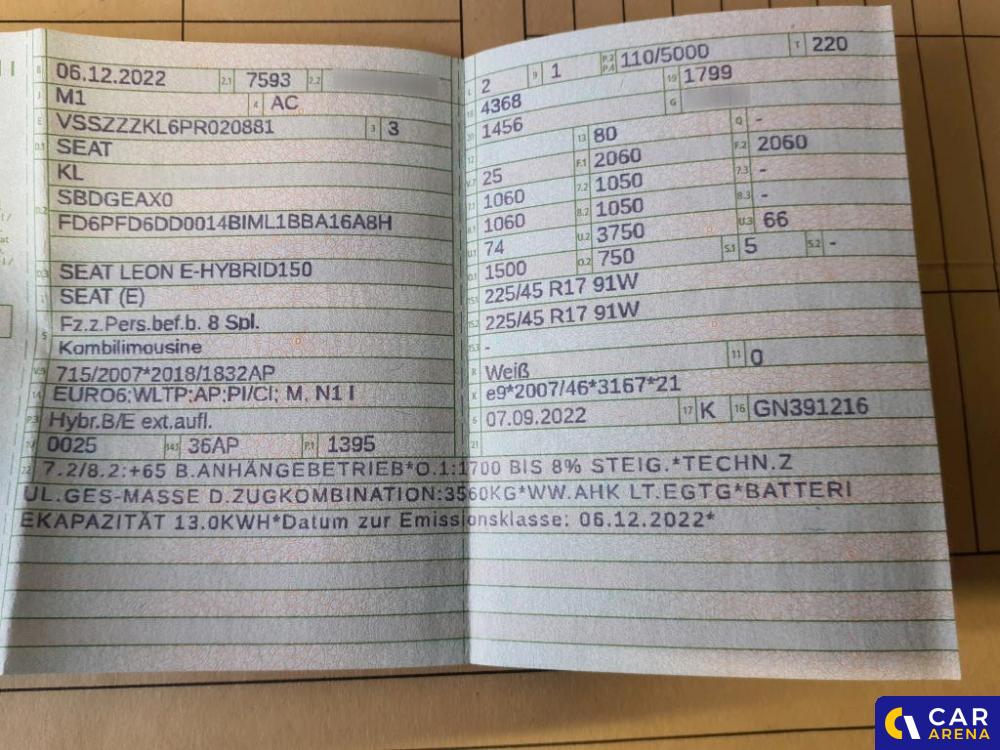 B 06.12.2022 2.1 7593 2.2
J M1 4 AC
E VSSZZZKL6PR020881 3 3
D.1 SEAT
KL
SBDGEAX0
D.2 FD6PFD6DD0014BIML1BBA16A8H
D.3 SEAT LEON E-HYBRID150
2 SEAT (E)
Fz.z.Pers.bef.b. 8 Spl.
5 Kombilimousine
V.9 715/2007*2018/1832AP
14 EURO6;WLTP;AP;PI/CI; M, N1 I
P.3 Hybr.B/E ext.aufl.
10 0025 14.1 36AP P.1 1395
L 2 9 1 P.2 P.4 110/5000 T 220
18 4368 19 1799
20 1456 G
12 13 80 Q -
V.7 25 F.1 2060 F.2 2060
7.1 1060 7.2 1050 7.3 -
8.1 1060 8.2 1050 8.3 -
U.1 74 U.2 3750 U.3 66
O.1 1500 O.2 750 S.1 5 S.2 -
15.1 225/45 R17 91W
15.2 225/45 R17 91W
15.3 -
R Weiß 11 0
K e9*2007/46*3167*21
6 07.09.2022 17 K 16 GN391216
21
22 7.2/8.2:+65 B.ANHÄNGEBETRIEB*O.1:1700 BIS 8% STEIG.*TECHN.Z
UL.GES-MASSE D.ZUGKOMBINATION:3560KG*WW.AHK LT.EGTG*BATTERI
EKAPAZITÄT 13.0KWH*Datum zur Emissionsklasse: 06.12.2022*
CAR
ARENA